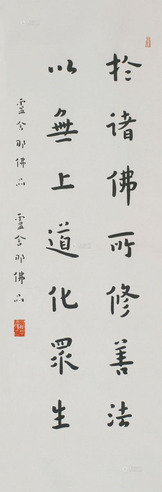 於諸佛所修善法
以無上道化眾生
盧舍那佛品 盧舍那佛品